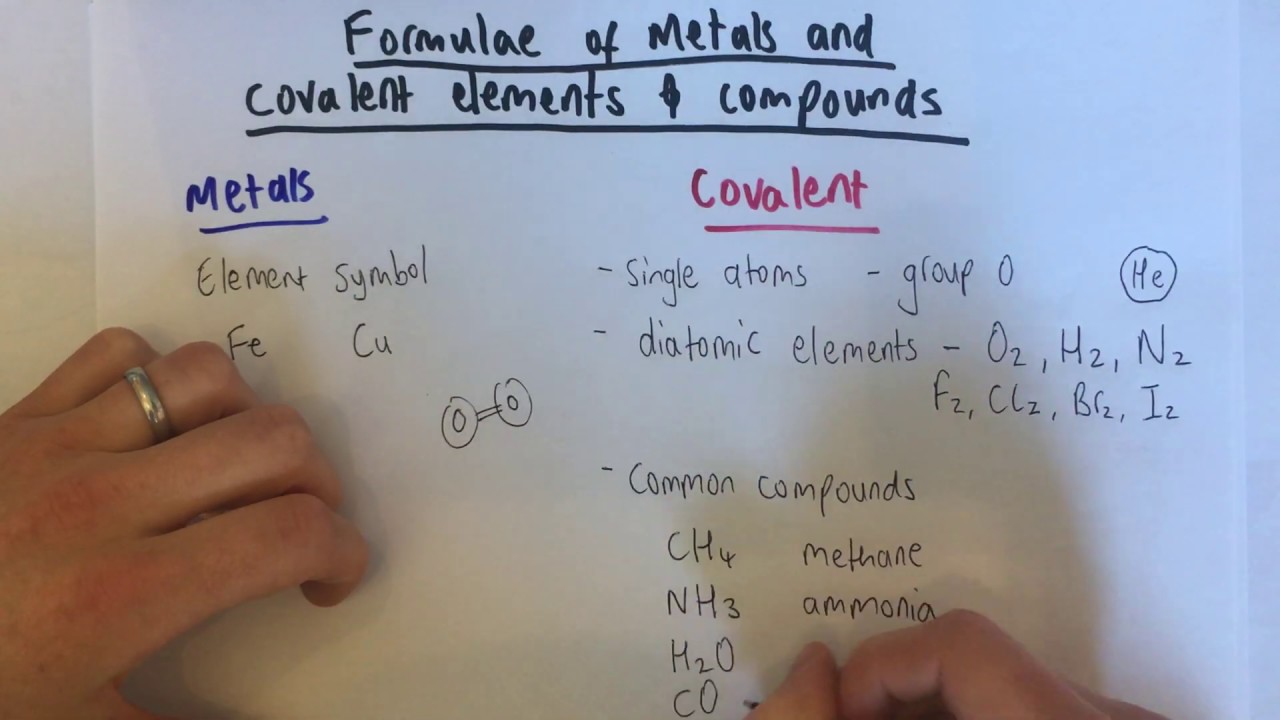 Formulae of Metals and
Covalent elements & compounds
Metals
Covalent
Element Symbol
Fe Cu
O=O
- Single atoms - group 0 He
- diatomic elements - O₂, H₂, N₂
F₂, Cl₂, Br₂, I₂
- Common compounds
CH₄ methane
NH₃ ammonia
H₂O
CO